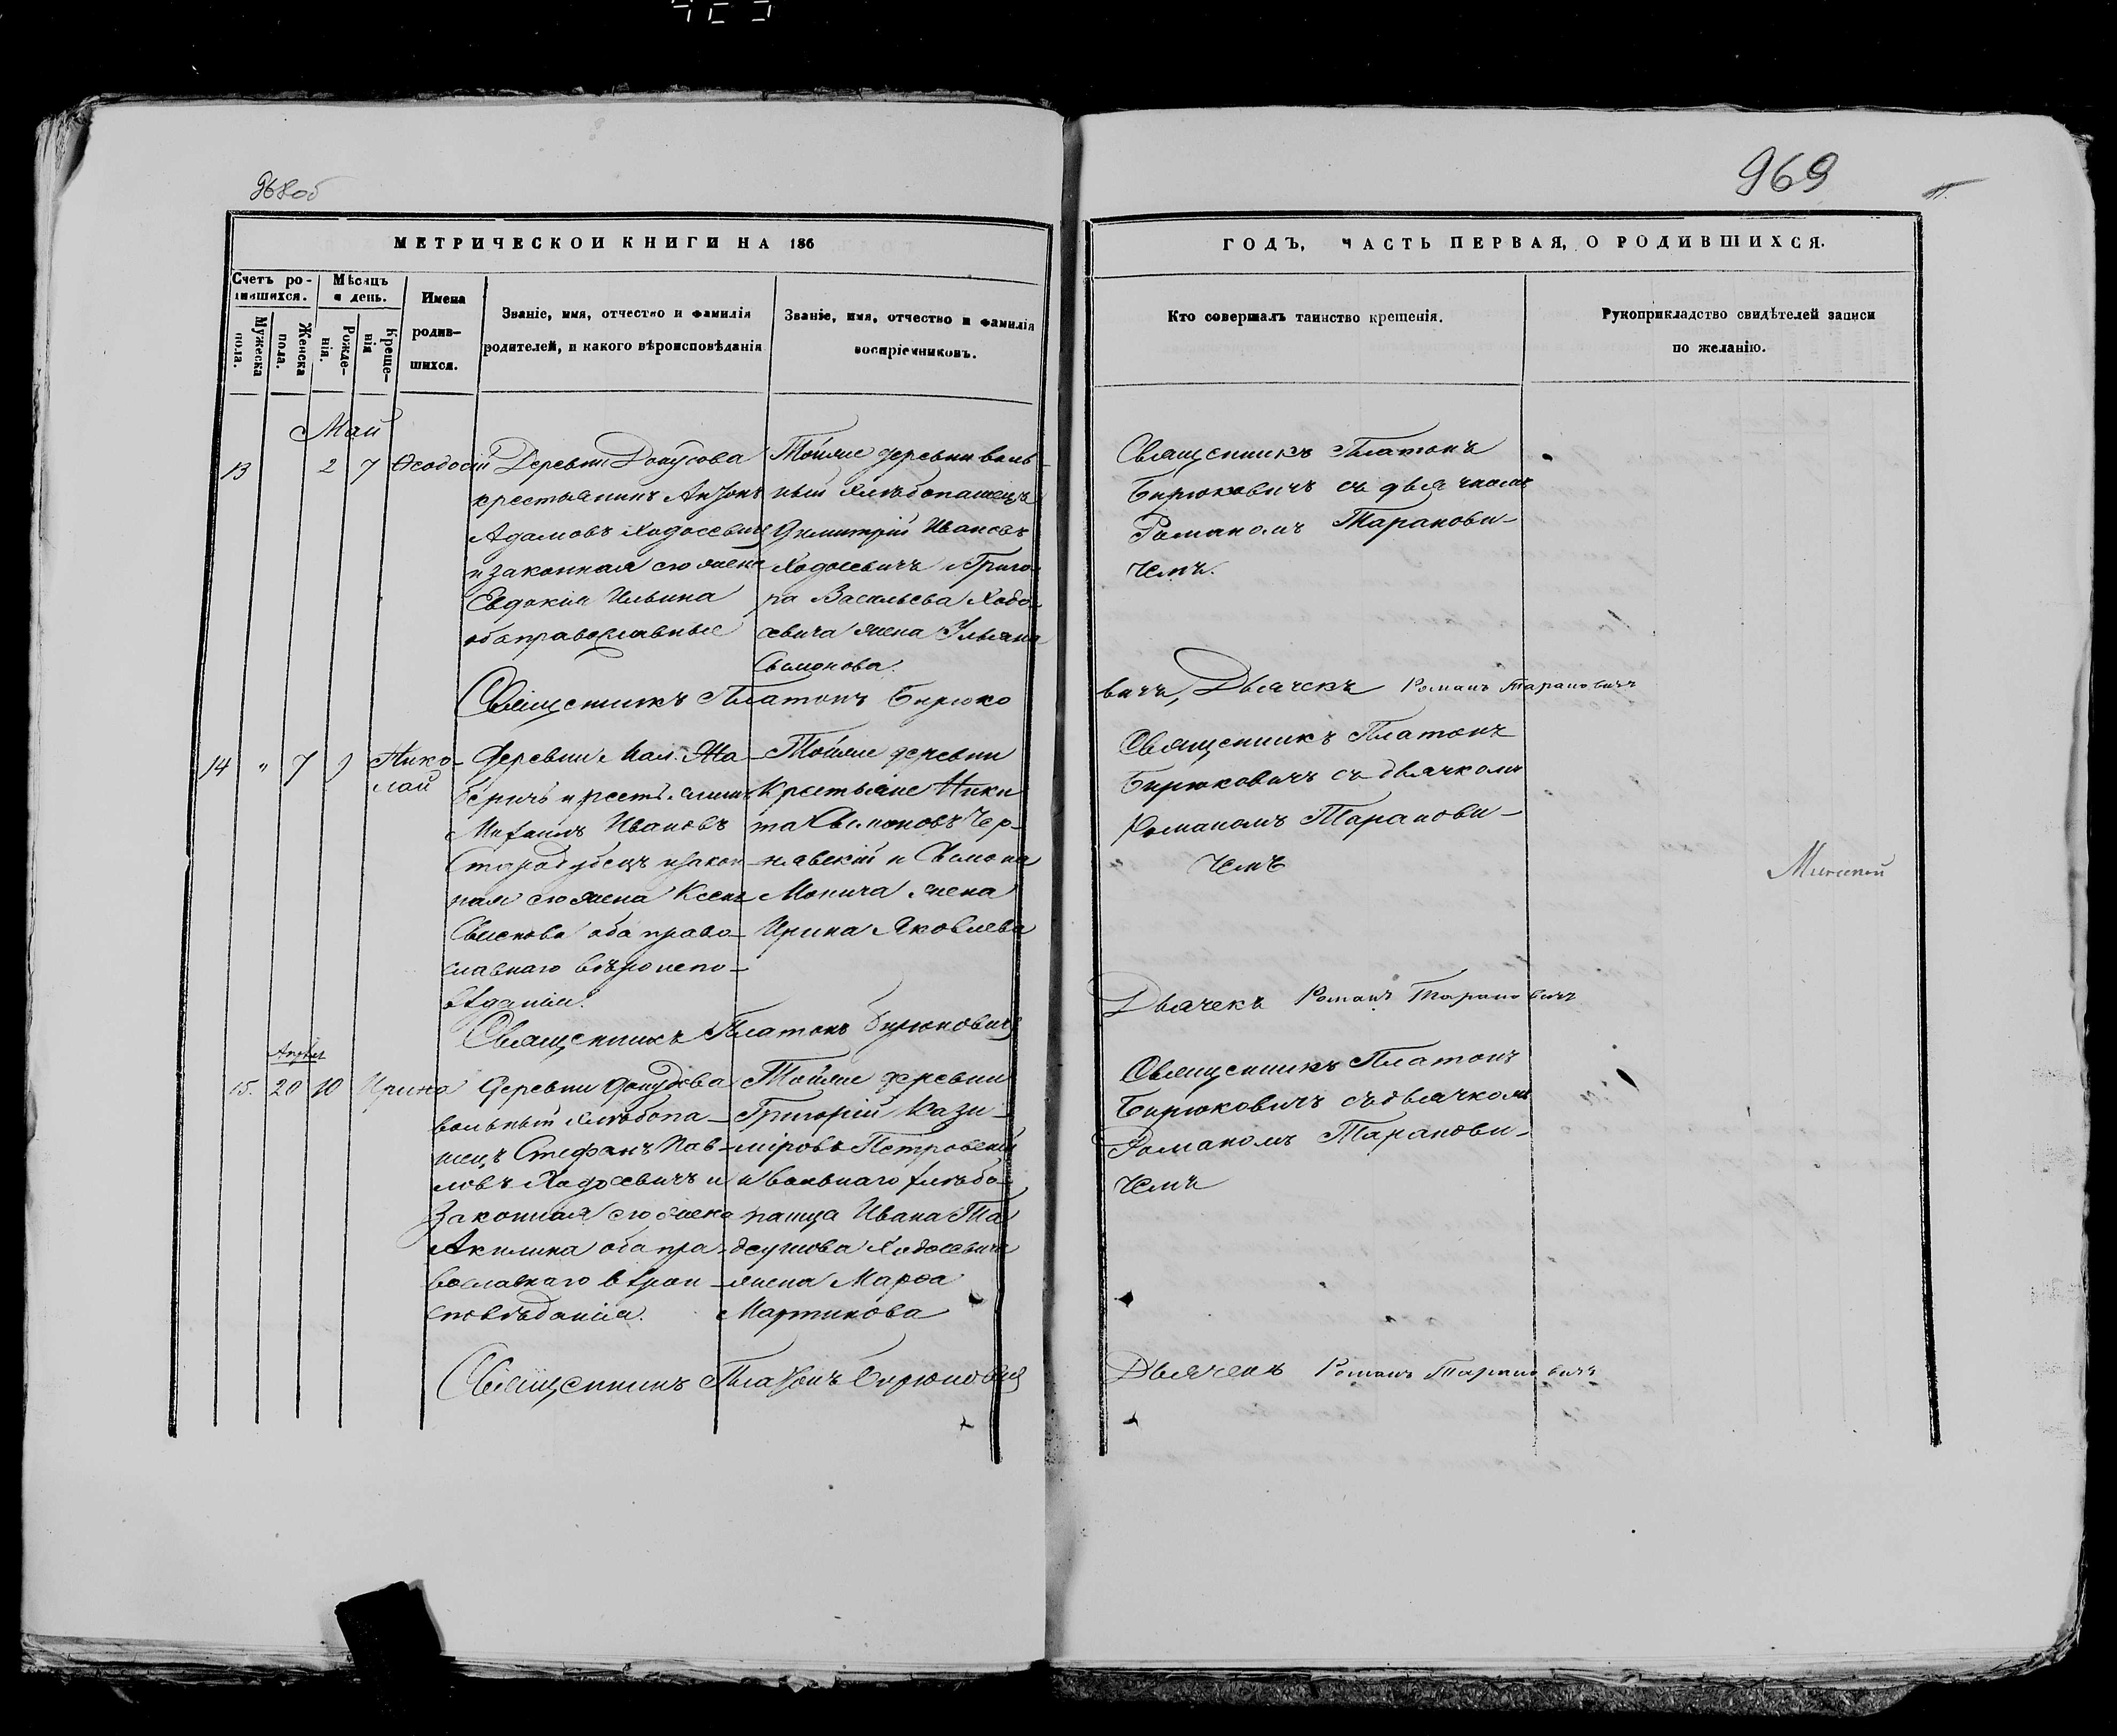 968об
969
МЕТРИЧЕСКОЙ КНИГИ НА 186
ГОДЪ, ЧАСТЬ ПЕРВАЯ, О РОДИВШИХСЯ.
Счетъ ро-
дившихся.
Мужеска пола.
Женска пола.
Мѣсяцъ
и день.
Рожде-
нія.
Креще-
нія
Имена
родив-
шихся.
Званіе, имя, отчество и фамилія
родителей, и какого вѣроисповѣданія
Званіе, имя, отчество и фамилія
воспріемниковъ.
Кто совершалъ таинство крещенія.
Рукоприкладство свидѣтелей записи
по желанію.
Май
13 2 7 Ѳеодосій
Деревни
крестьянинъ Антонъ
Адамовъ Ходосевичъ
и законная его жена
Евдокія Ильина
оба православные
Тойже деревни воль-
ный хлѣбопашецъ
Димитрій Ивановъ
Ходосевичъ и Григо-
ра Васильева Ходо-
севича жена Ульяна
Сѣмонова.
Священникъ Платонъ
Бирюковичъ съ дьячкомъ
Романомъ Таранови-
чемъ.
Священникъ Платонъ Бирюко
вичъ, Дьячекъ Романъ Тарановичъ
14 " 7 9 Нико-
лай
Деревни Мал.
Михаилъ Ивановъ
Стародубецъ и закон
ная его жена
оба право-
славнаго вѣроиспо-
вѣданія.
Тойже деревни
Крестьяне Ники
та Сѣмоновъ Чер-
нявскій и Сѣмона
Монича жена
Ирина Яковлева
Священникъ Платонъ
Бирюковичъ съ дьячкомъ
Романомъ Таранови-
чемъ
Священникъ Платонъ Бирюковичъ
Дьячекъ Романъ Тарановичъ
15. 20 10 Ирина
Деревни
вольный хлѣбопа-
шецъ Стефанъ Пав-
ловъ Ходосевичъ и
законная его жена
Акилина оба пра-
вославнаго вѣрои-
сповѣданія.
Тойже деревни
Григорій Кази-
міровъ Петровскій
и вольнаго хлѣбо-
пашца Ивана Та
деушова Ходосевича
жена Марѳа
Мартинова
Священникъ Платонъ
Бирюковичъ съ дьячкомъ
Романомъ Таранови-
чемъ
Священникъ Платонъ Бирюковичъ
Дьячекъ Романъ Тарановичъ